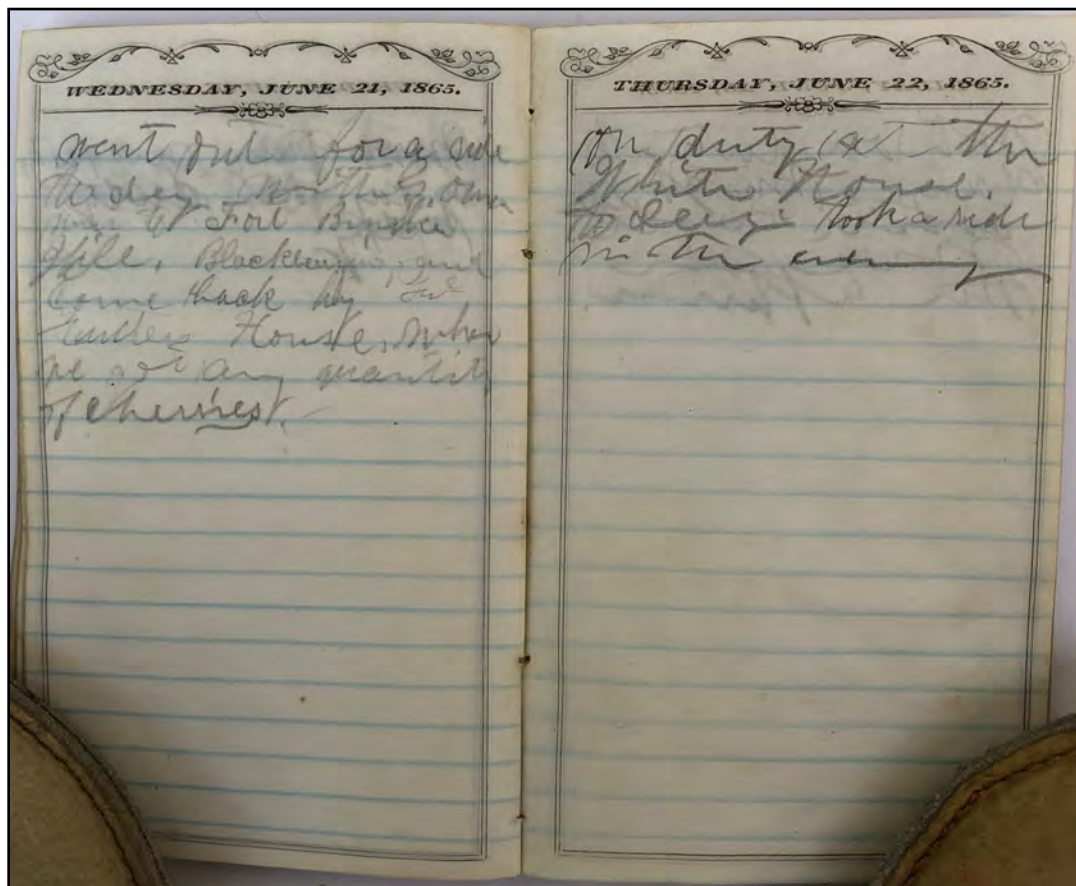 WEDNESDAY, JUNE 21, 1865.
went out for a ride
to day
Fort Bunker
Hill, Blackberries, and
Come back by
House, where
we got any quantity
of cherries.
THURSDAY, JUNE 22, 1865.
On duty at the
White House.
took a ride
in the evening